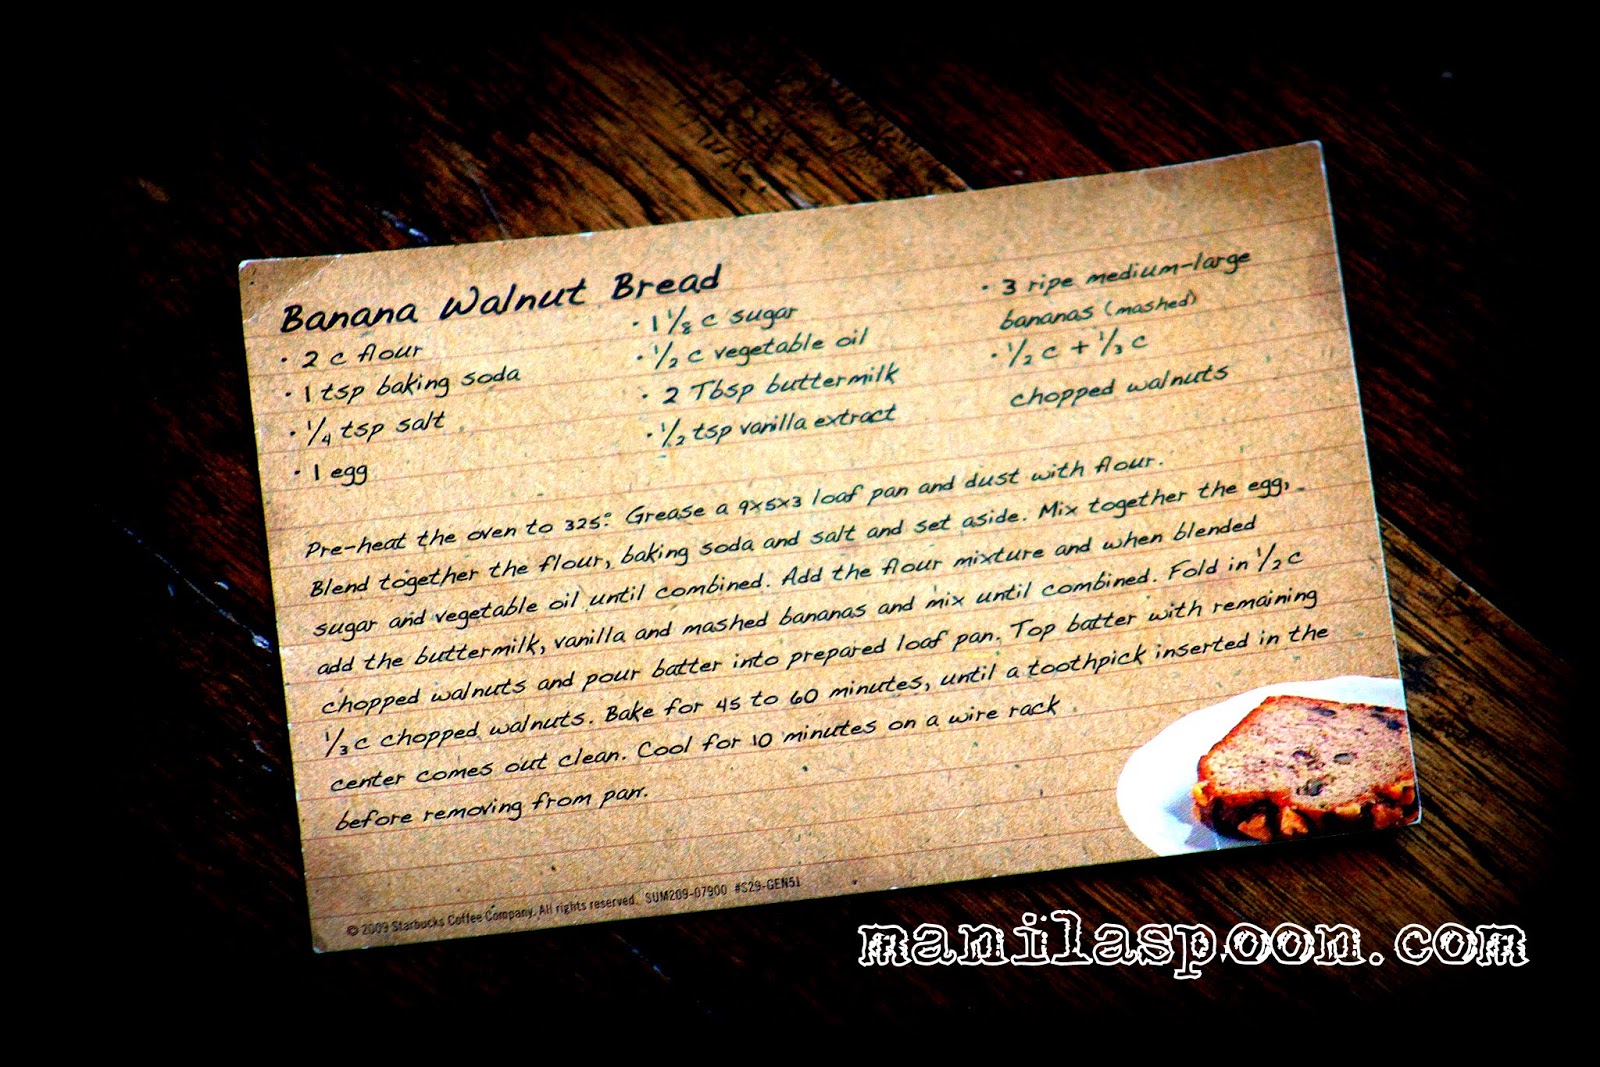 Banana Walnut Bread
• 2 c flour
• 1 tsp baking soda
• 1/4 tsp salt
• 1 egg
• 1 1/8 c sugar
• 1/2 c vegetable oil
• 2 Tbsp buttermilk
• 1/2 tsp vanilla extract
• 3 ripe medium-large
bananas (mashed)
• 1/2 c + 1/3 c
chopped walnuts
Pre-heat the oven to 325°. Grease a 9x5x3 loaf pan and dust with flour.
Blend together the flour, baking soda and salt and set aside. Mix together the egg,
sugar and vegetable oil until combined. Add the flour mixture and when blended
add the buttermilk, vanilla and mashed bananas and mix until combined. Fold in 1/2 c
chopped walnuts and pour batter into prepared loaf pan. Top batter with remaining
1/3 c chopped walnuts. Bake for 45 to 60 minutes, until a toothpick inserted in the
center comes out clean. Cool for 10 minutes on a wire rack
before removing from pan.
© 2009 Starbucks Coffee Company. All rights reserved. SUM209-07900 #S29-GEN51
manilaspoon.com